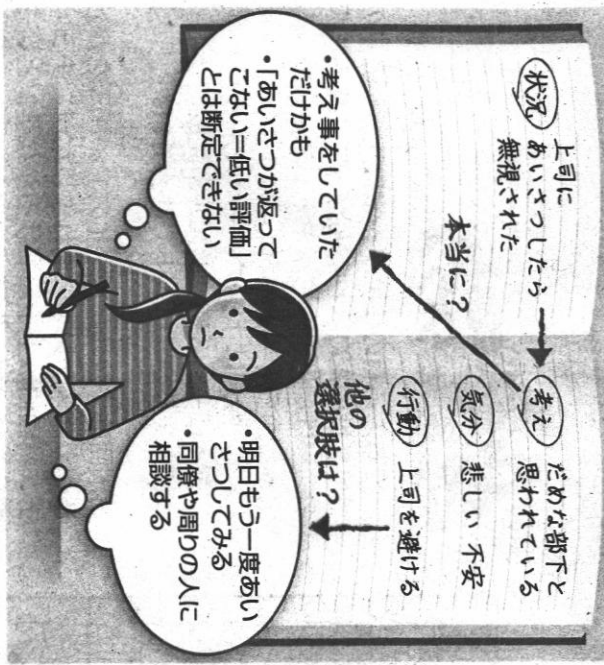 状況
上司に
あいさつしたら
無視された
考え
だめな部下と
思われている
気分
悲しい 不安
行動
上司を避ける
本当に?
・考え事をしていた
だけかも
・「あいさつが返って
こない=低い評価」
とは断定できない
他の
選択肢は?
・明日もう一度あい
さつしてみる
・同僚や周りの人に
相談する